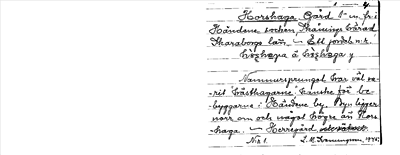 Horshaga Gård 1 m. fr. i
Händene socken Skånings härad
Skaraborgs län, – Ett jordeb. n:r.
hɷṣhaga å, hɷṣhaga y
Namnursprunget har väl va-
rit hästhagarne kanske för be-
byggarne i Händene by. Byn ligger
norr om och något högre än Hors-
haga. – Herregård
N:r 1.